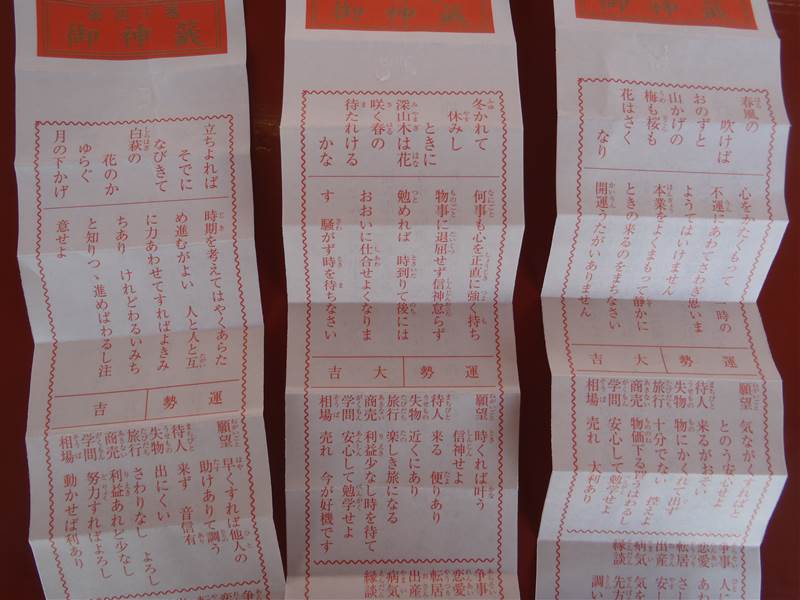 御神籤
春風の
吹けば
おのずと
山かげの
梅も桜も
花はさく
なり
心をかたくもって 一時の
不運にあわてさわぎ思いま
ようてはいけません
本業をよくまもって静かに
ときの来るのをまちなさい
開運うたがいありません
運勢
願望 気ながくすればと
とのう安心せよ
待人 来るがおそい
失物 物にかくれて出ず
旅行 十分でない 控えよ
商売 物価下る
はわるし
学問 安心して勉
相場 売れ 大利あり
争事 人に
恋愛 あわ
転居 さし
出産 安し
病気 気を
縁談 先方
調い
御神籤
冬かれて
休みし
ときに
深山木は花
咲く春の
待たれける
かな
何事も心を正直に強く持ち
物事に退屈せず信神怠らず
勉めれば 時到りて後には
おおいに仕合せよくなりま
す 騒がず時を待ちなさい
運勢 大吉
願望 時くれば叶う
信神せよ
待人 来る 便りあり
失物 近くにあり
旅行 楽しき旅になる
商売 利益少なし時を待て
学問 安心して勉学せよ
相場 売れ 今が好機です
争事
恋愛
転居
出産
病気
縁談
御神籤
立ちよれば
そでに
なびきて
白萩の
花のか
ゆらぐ
月の下かげ
時期を考えてはやくあらた
め進むがよい 人と人と互
に力あわせてすればよきみ
ちあり けれどわるいみち
と知りつゝ進めばわるし注
意せよ
運勢 吉
願望 早くすれば他人の
助けありて調う
待人 来ず 音信有
失物 出にくい
旅行 さわりなし よろし
商売 利益あれど少なし
学問 努力すればよろし
相場 動かせば利あり
争